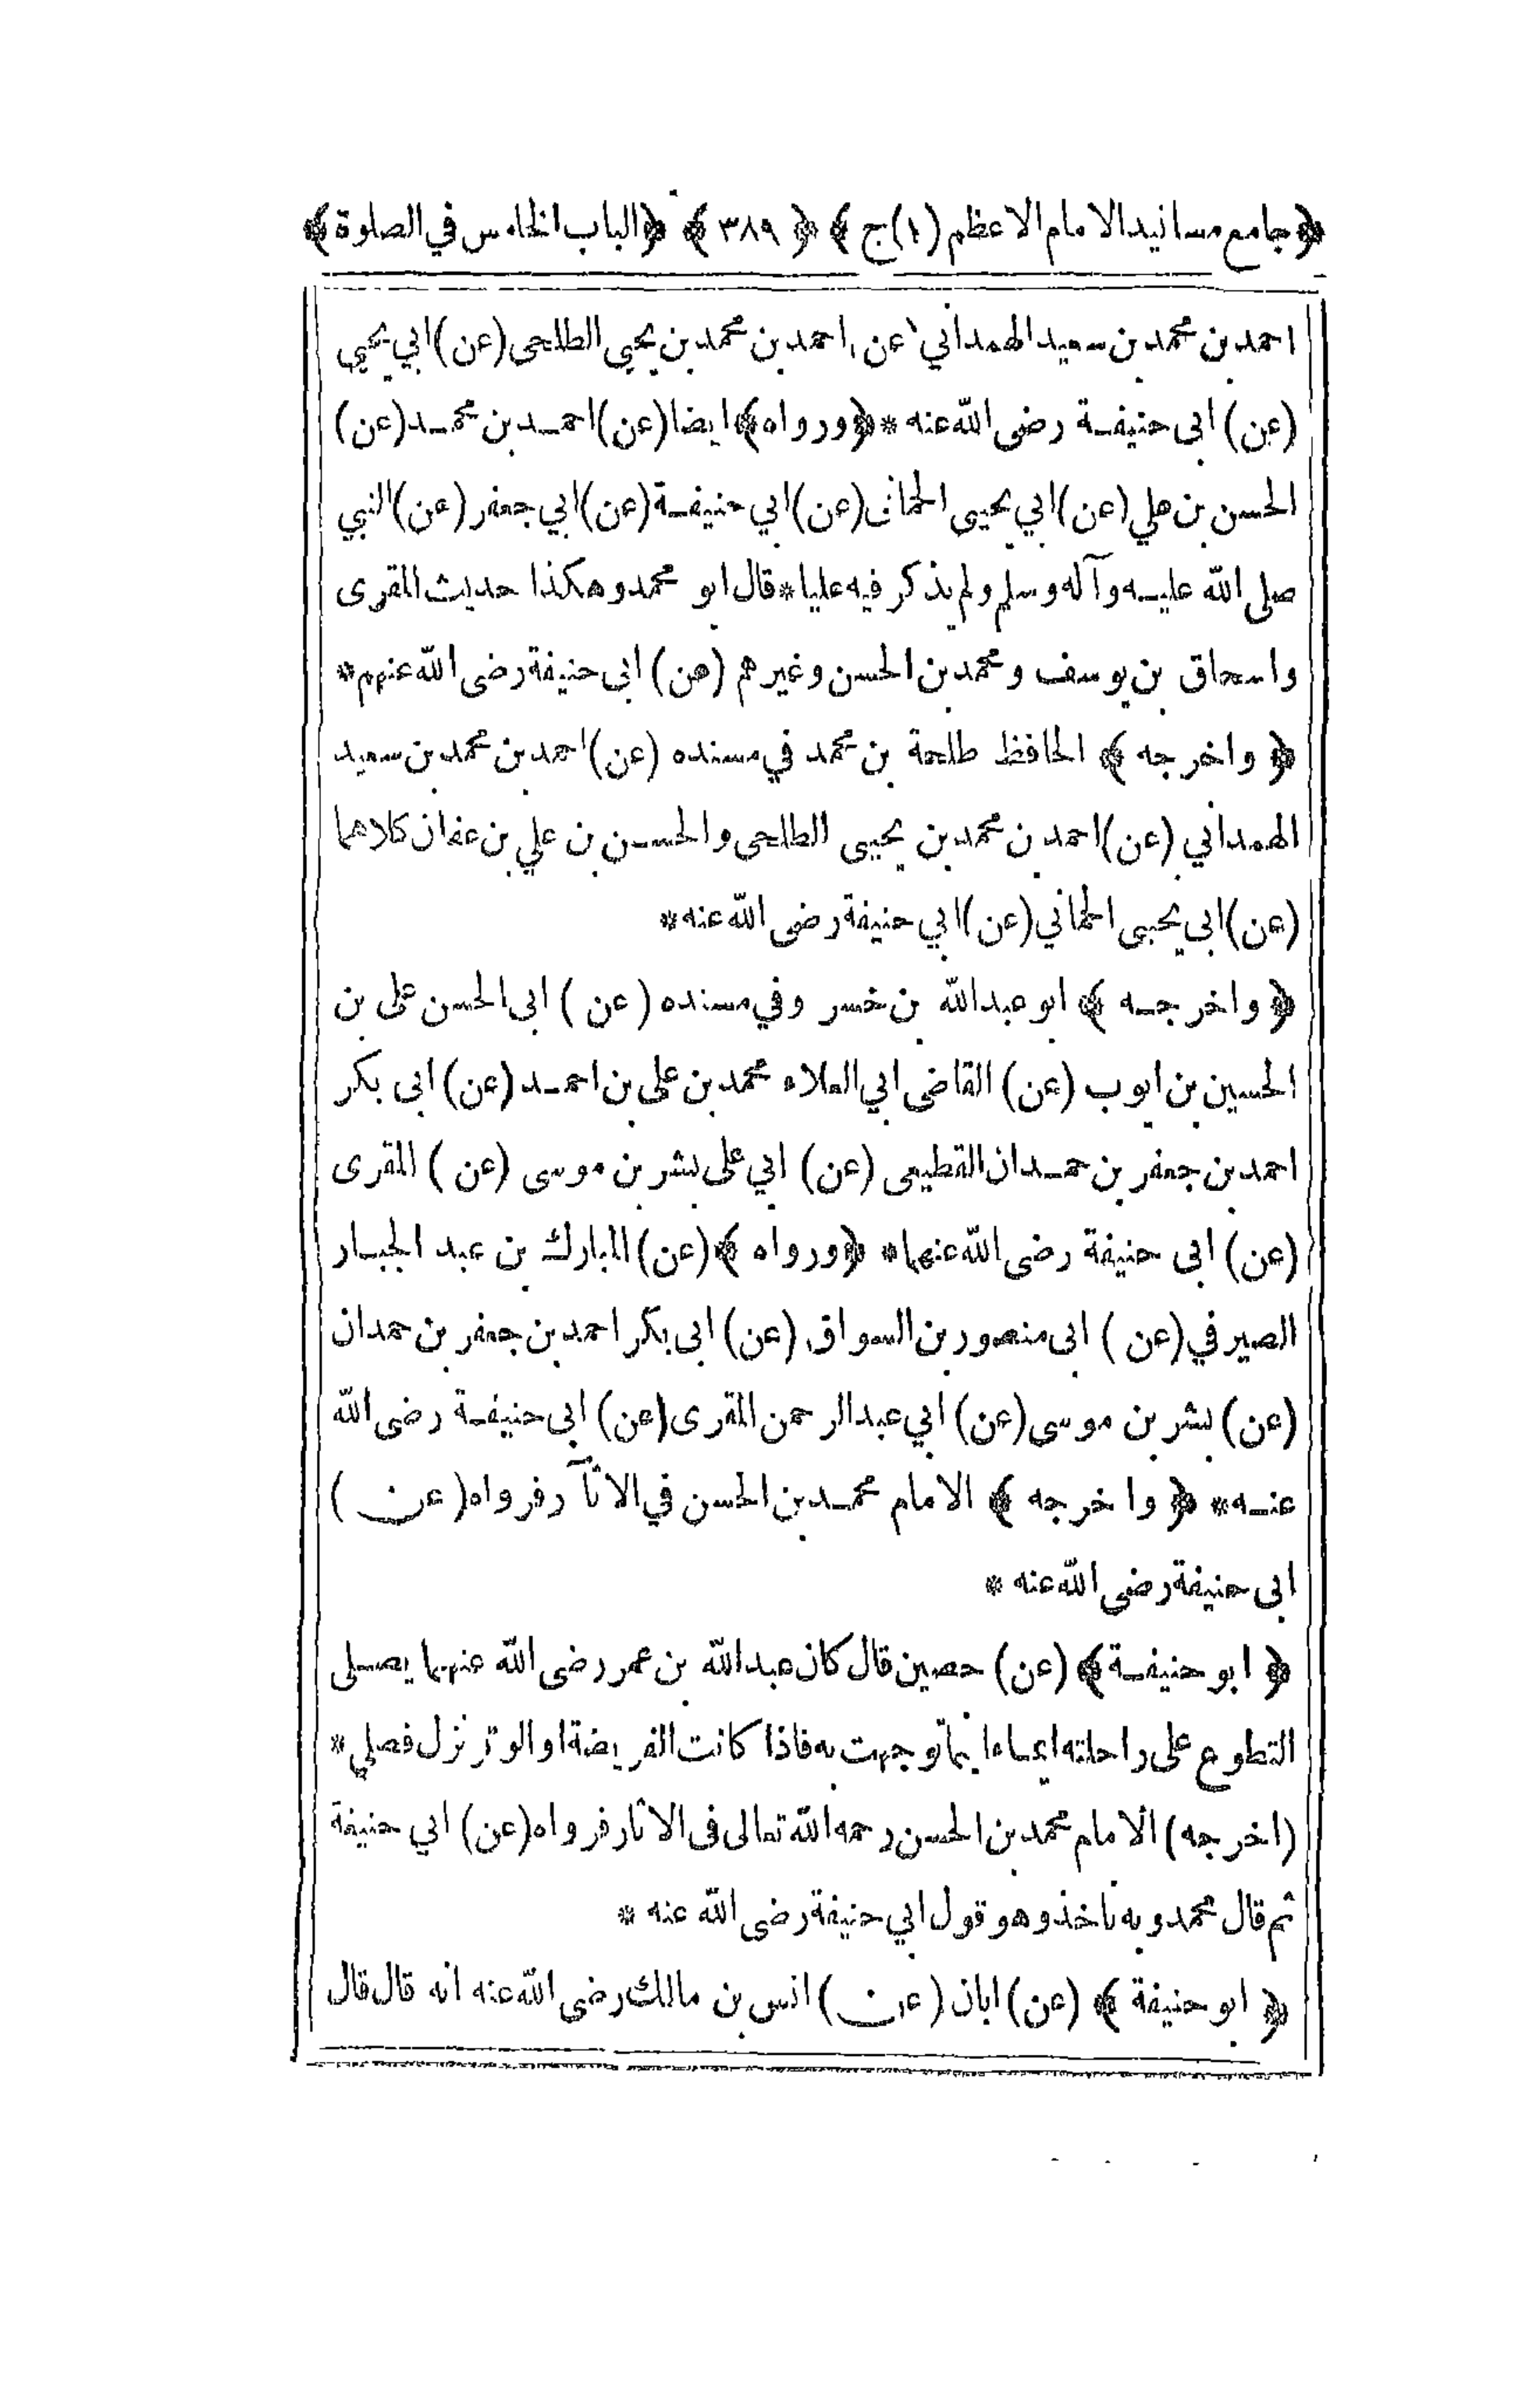 ﴿جامع مسانيد الامام الاعظم (١)ج﴾ ﴿٣٨٩﴾ ﴿الباب الخامس في الصلوة﴾
احمد بن محمد بن سعيد الهمداني (عن) احمد بن محمد بن يحيى الطلحى (عن) ابي يحيى
(عن) ابى حنيفة رضى الله عنه * ﴿ورواه﴾ ايضا (عن) احمد بن محمد (عن)
الحسن بن علي (عن) ابي يحيى الحمانى (عن) ابي حنيفة (عن) ابي جعفر (عن) النبي
صلى الله عليه وآله وسلم ولم يذكر فيه عليا * قال ابو محمد وهكذا حديث المقرى
واسحاق بن يوسف ومحمد بن الحسن وغيرهم (عن) ابى حنيفة رضى الله عنهم *
﴿واخرجه﴾ الحافظ طلحة بن محمد في مسنده (عن) احمد بن محمد بن سعيد
الهمداني (عن) احمد بن محمد بن يحيى الطلحى والحسن بن علي بن عفان كلاهما
(عن) ابى يحيى الحماني (عن) ابي حنيفة رضى الله عنه *
﴿واخرجه﴾ ابو عبد الله بن خسر وفي مسنده (عن) ابى الحسن على بن
الحسين بن ايوب (عن) القاضى ابي العلاء محمد بن على بن احمد (عن) ابى بكر
احمد بن جعفر بن حمدان القطيعى (عن) ابي على بشر بن موسى (عن) المقرى
(عن) ابى حنيفة رضى الله عنهما * ﴿ورواه﴾ (عن) المبارك بن عبد الجبار
الصيرفي (عن) ابى منصور بن السواق (عن) ابى بكر احمد بن جعفر بن حمدان
(عن) بشر بن موسى (عن) ابي عبد الرحمن المقرى (عن) ابى حنيفة رضى الله
عنه * ﴿واخرجه﴾ الامام محمد بن الحسن في الآثار فرواه (عن)
ابى حنيفة رضى الله عنه *
﴿ابو حنيفة﴾ (عن) حصين قال كان عبد الله بن عمر رضى الله عنهما يصلى
التطوع على راحلته ايماءا اينما توجهت به فاذا كانت الفريضة او الوتر نزل فصلى *
(اخرجه) الامام محمد بن الحسن رحمه الله تعالى فى الآثار فرواه (عن) ابي حنيفة
ثم قال محمد وبه ناخذ وهو قول ابي حنيفة رضى الله عنه *
﴿ابو حنيفة﴾ (عن) ابان (عن) انس بن مالك رضى الله عنه انه قال قال